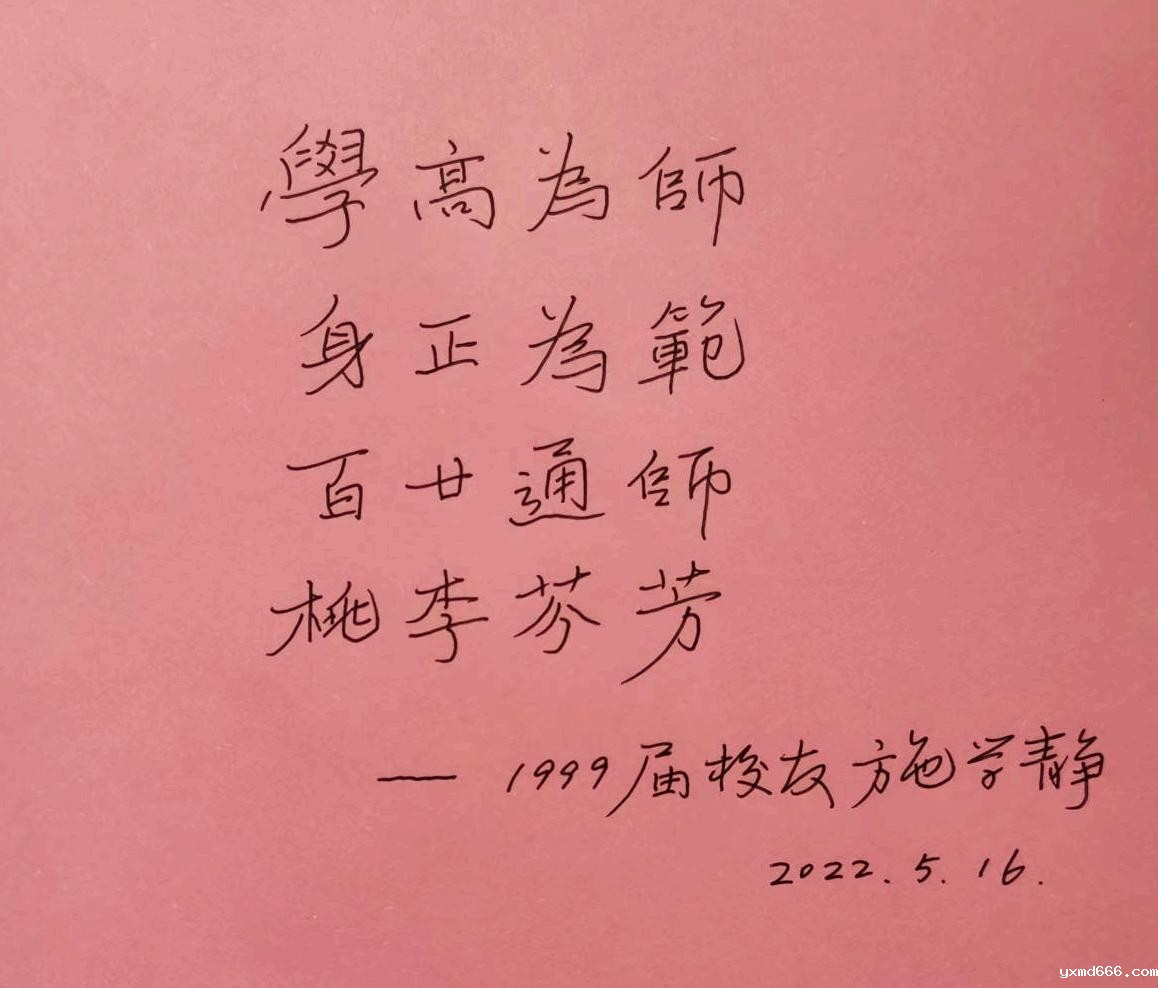 學高為師
身正為範
百廿通師
桃李芬芳
— 1999届校友施学静
2022.5.16.
yxmd666.com